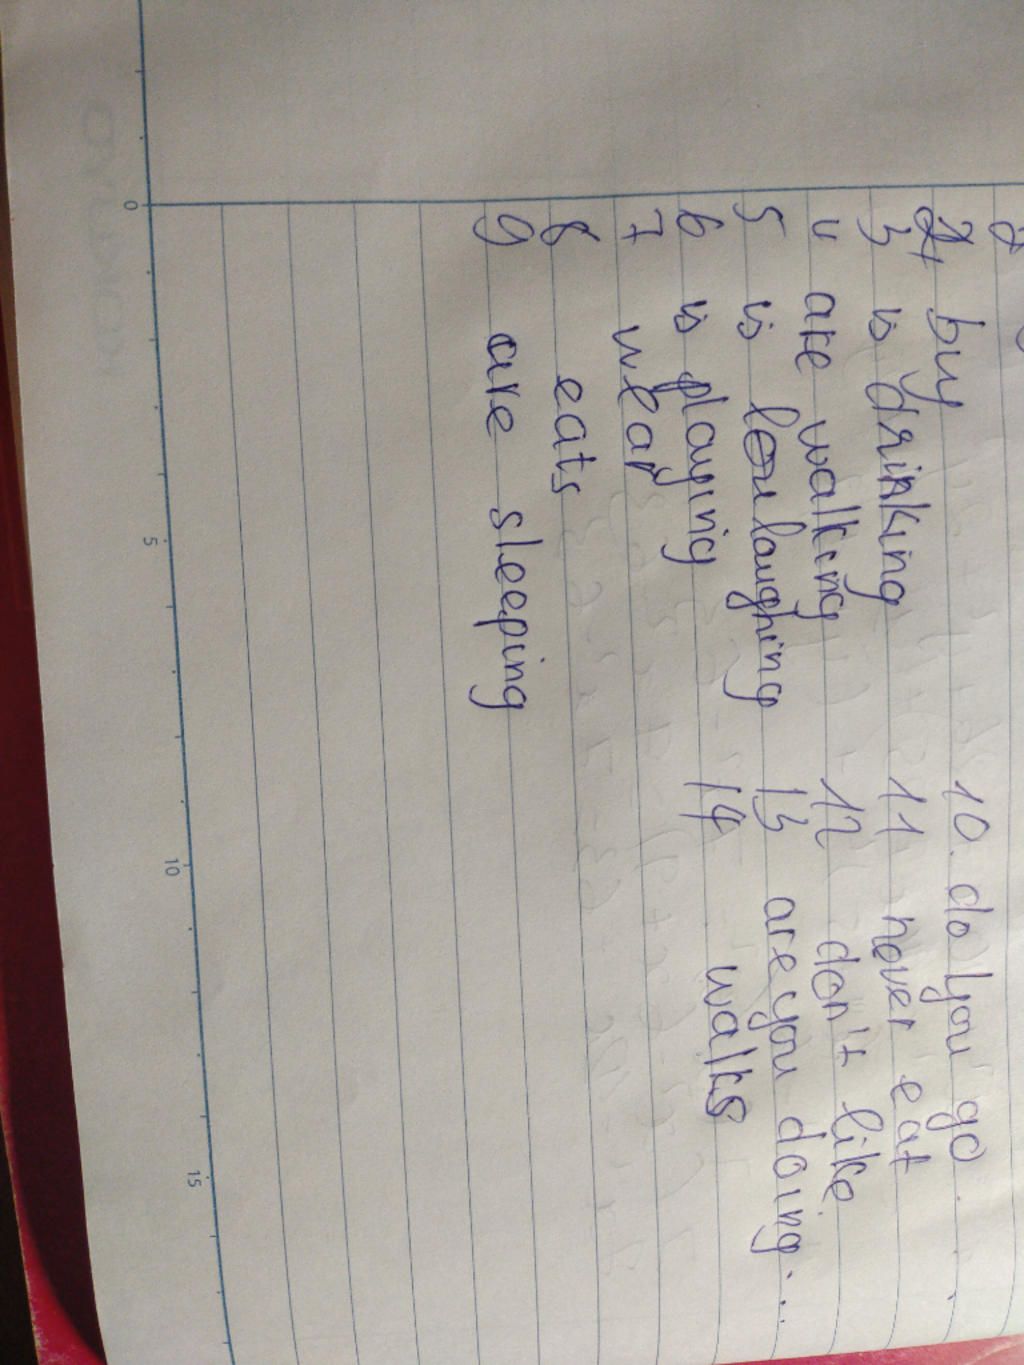 2 buy
3 is drinking
4 are walking
5 is laughing
6 is playing
7 wear
8 eats
9 are sleeping
10. do you go
11 never eat
12 don't like
13 are you doing...
14 walks
0 5 10 15